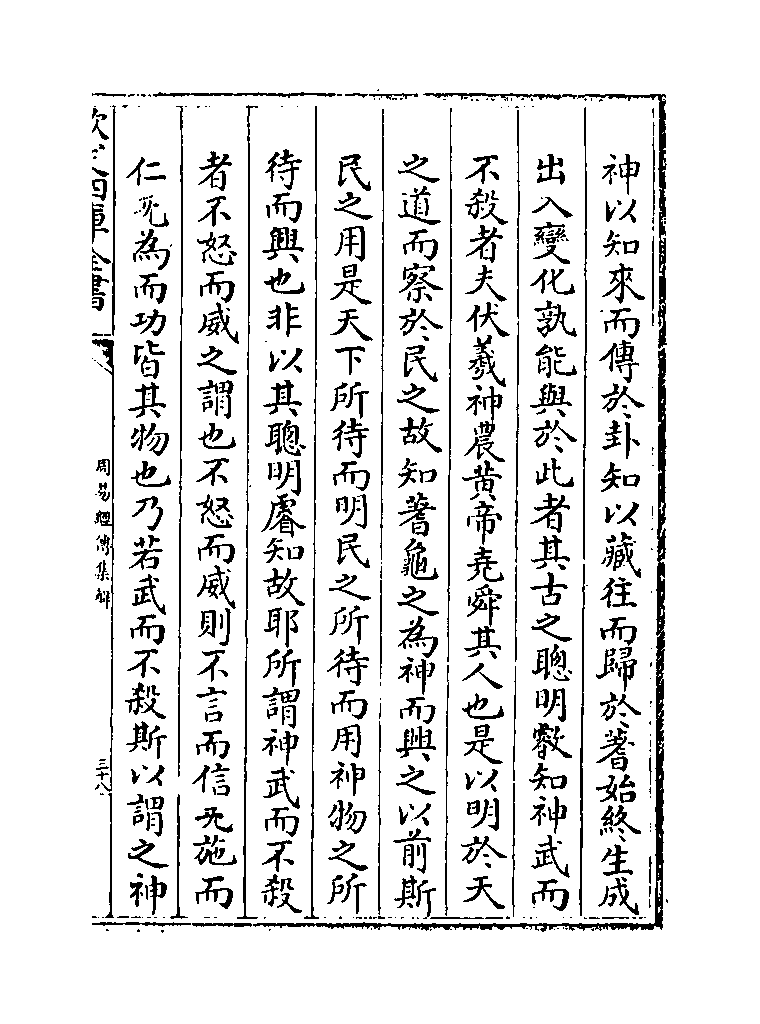 神以知來而傳於卦知以藏往而歸於蓍始終生成
出入變化孰能與於此者其古之聰明叡知神武而
不殺者夫伏羲神農黄帝堯舜其人也是以明於天
之道而察於民之故知蓍龜之為神而興之以前斯
民之用是天下所待而明民之所待而用神物之所
待而興也非以其聰明睿知故耶所謂神武而不殺
者不怒而威之謂也不怒而威則不言而信旡施而
仁旡為而功皆其物也乃若武而不殺斯以謂之神
欽定四庫全書
周易經傳集解
三十八